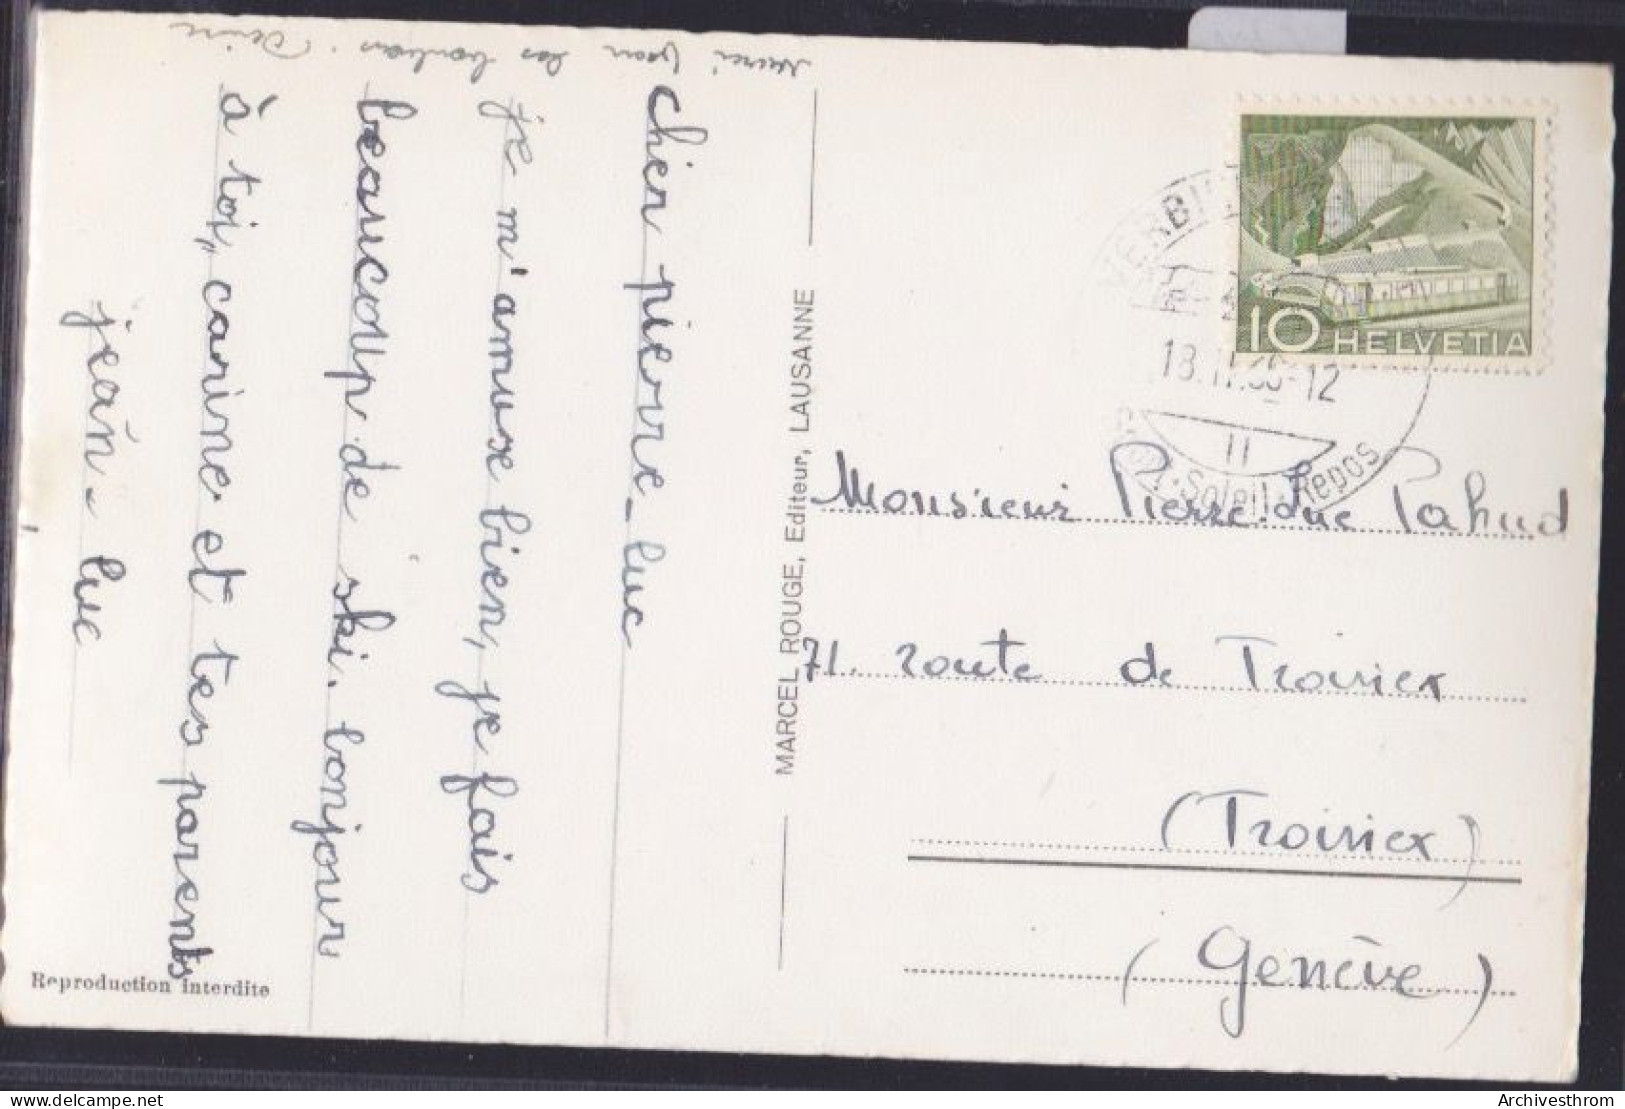 Merci pour les bonbons. Denise
cher pierre-luc
je m'amuse bien, je fais
beaucoup de ski. bonjour
à toi, carine et tes parents
jean-luc
Reproduction interdite
MARCEL ROUGE, Editeur, LAUSANNE
VERBIER
18.II.56-12
Soleil. Repos
10 HELVETIA
Monsieur Pierre.Luc Pahud
71. route de Troinex
(Troinex)
(Genève)
delcampe.net
Archivesthrom